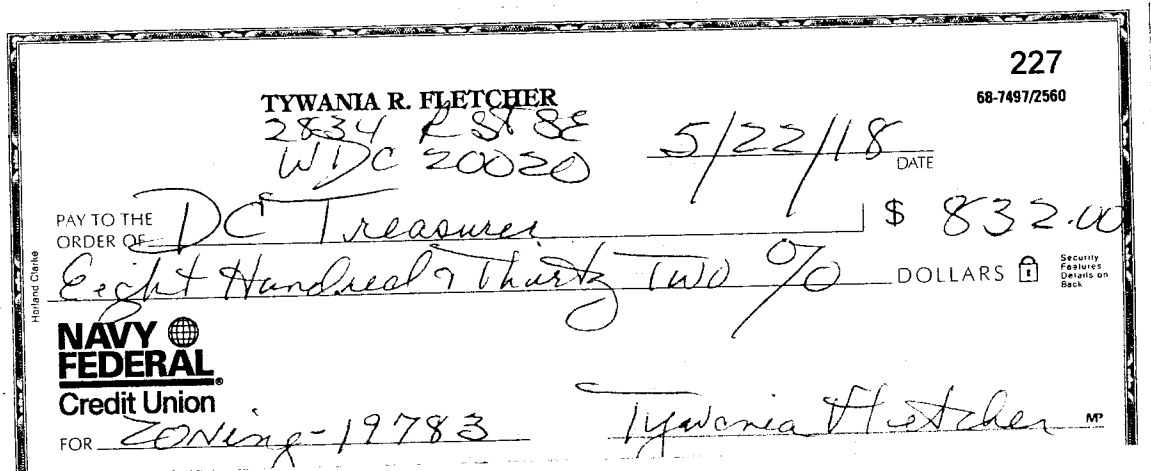 227
68-7497/2560
TYWANIA R. FLETCHER
2834 R ST SE
WDC 20020
5/22/18 DATE
PAY TO THE
ORDER OF DC Treasurer $ 832.00
Eight Hundred & Thirty Two % DOLLARS
Security
Features
Details on
Back
Harland Clarke
NAVY
FEDERAL
Credit Union
FOR Zoning-19783 Tywania Fletcher MP